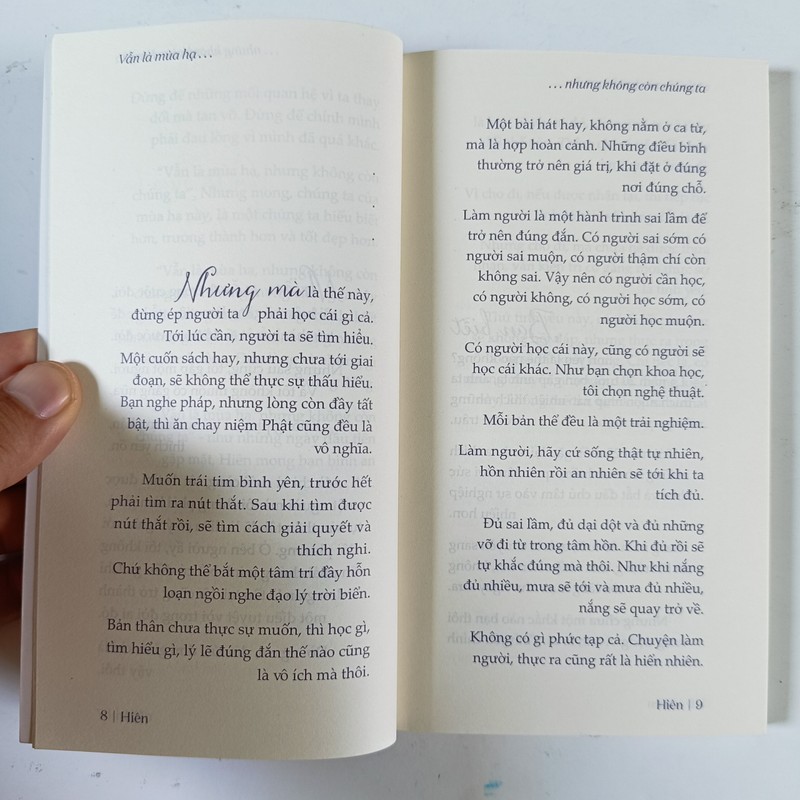 Vẫn là mùa hạ . . .
Nhưng mà là thế này,
đừng ép người ta phải học cái gì cả.
Tới lúc cần, người ta sẽ tìm hiểu.
Một cuốn sách hay, nhưng chưa tới giai
đoạn, sẽ không thể thực sự thấu hiểu.
Bạn nghe pháp, nhưng lòng còn đầy tất
bật, thì ăn chay niệm Phật cũng đều là
vô nghĩa.
Muốn trái tim bình yên, trước hết
phải tìm ra nút thắt. Sau khi tìm được
nút thắt rồi, sẽ tìm cách giải quyết và
thích nghi.
Chứ không thể bắt một tâm trí đầy hỗn
loạn ngồi nghe đạo lý trời biển.
Bản thân chưa thực sự muốn, thì học gì,
tìm hiểu gì, lý lẽ đúng đắn thế nào cũng
là vô ích mà thôi.
8 | Hiên
. . . nhưng không còn chúng ta
Một bài hát hay, không nằm ở ca từ,
mà là hợp hoàn cảnh. Những điều bình
thường trở nên giá trị, khi đặt ở đúng
nơi đúng chỗ.
Làm người là một hành trình sai lầm để
trở nên đúng đắn. Có người sai sớm có
người sai muộn, có người thậm chí còn
không sai. Vậy nên có người cần học,
có người không, có người học sớm, có
người học muộn.
Có người học cái này, cũng có người sẽ
học cái khác. Như bạn chọn khoa học,
tôi chọn nghệ thuật.
Mỗi bản thể đều là một trải nghiệm.
Làm người, hãy cứ sống thật tự nhiên,
hồn nhiên rồi an nhiên sẽ tới khi ta
tích đủ.
Đủ sai lầm, đủ dại dột và đủ những
vỡ đi từ trong tâm hồn. Khi đủ rồi sẽ
tự khắc đúng mà thôi. Như khi nắng
đủ nhiều, mưa sẽ tới và mưa đủ nhiều,
nắng sẽ quay trở về.
Không có gì phức tạp cả. Chuyện làm
người, thực ra cũng rất là hiển nhiên.
Hiên | 9